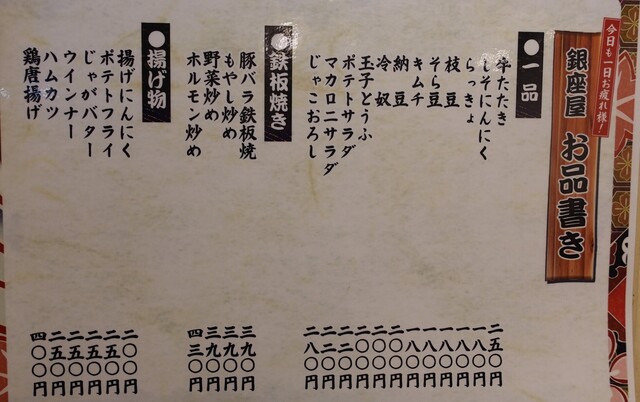 今日も一日お疲れ様!
銀座屋 お品書き
●一品
牛たたき 二五〇円
しそにんにく 一八〇円
らっきょ 一八〇円
枝豆 一八〇円
そら豆 一八〇円
キムチ 一八〇円
納豆 二〇〇円
冷奴 二〇〇円
玉子とうふ 二〇〇円
ポテトサラダ 二二〇円
マカロニサラダ 二二〇円
じゃこおろし 二八〇円
●鉄板焼き
豚バラ鉄板焼 三九〇円
もやし炒め 三九〇円
野菜炒め 三九〇円
ホルモン炒め 四三〇円
●揚げ物
揚げにんにく 二〇〇円
ポテトフライ 二五〇円
じゃがバター 二五〇円
ウインナー 二五〇円
ハムカツ 二五〇円
鶏唐揚げ 四〇〇円